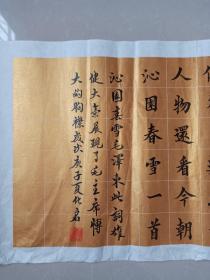 人物還看今朝
沁園春雪一首
沁園春雪毛澤東此詞雄
健大氣展現了毛主席博
大的胸襟歲次庚子夏化君